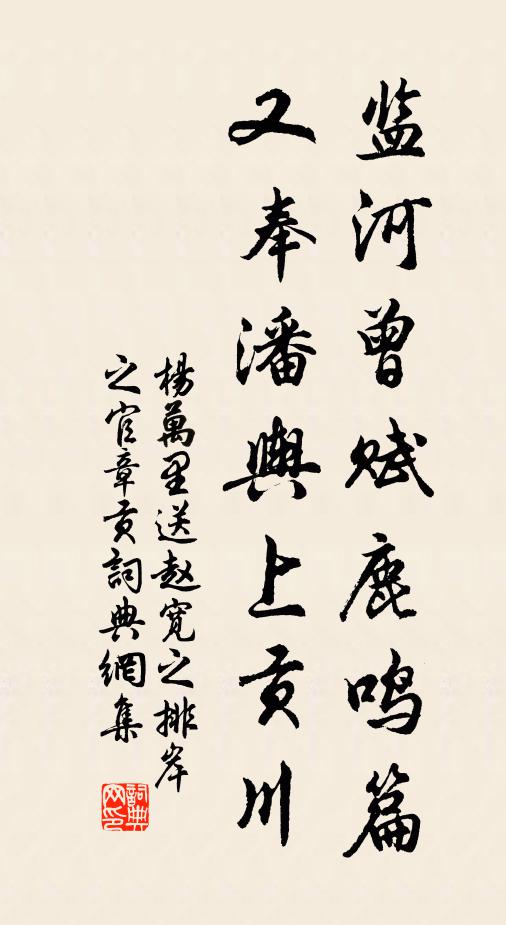 监河曾赋鹿鸣篇
又奉潘舆上贡川
楊萬里送赵寬之排岸
之官章贡詞典網集
詞典网印